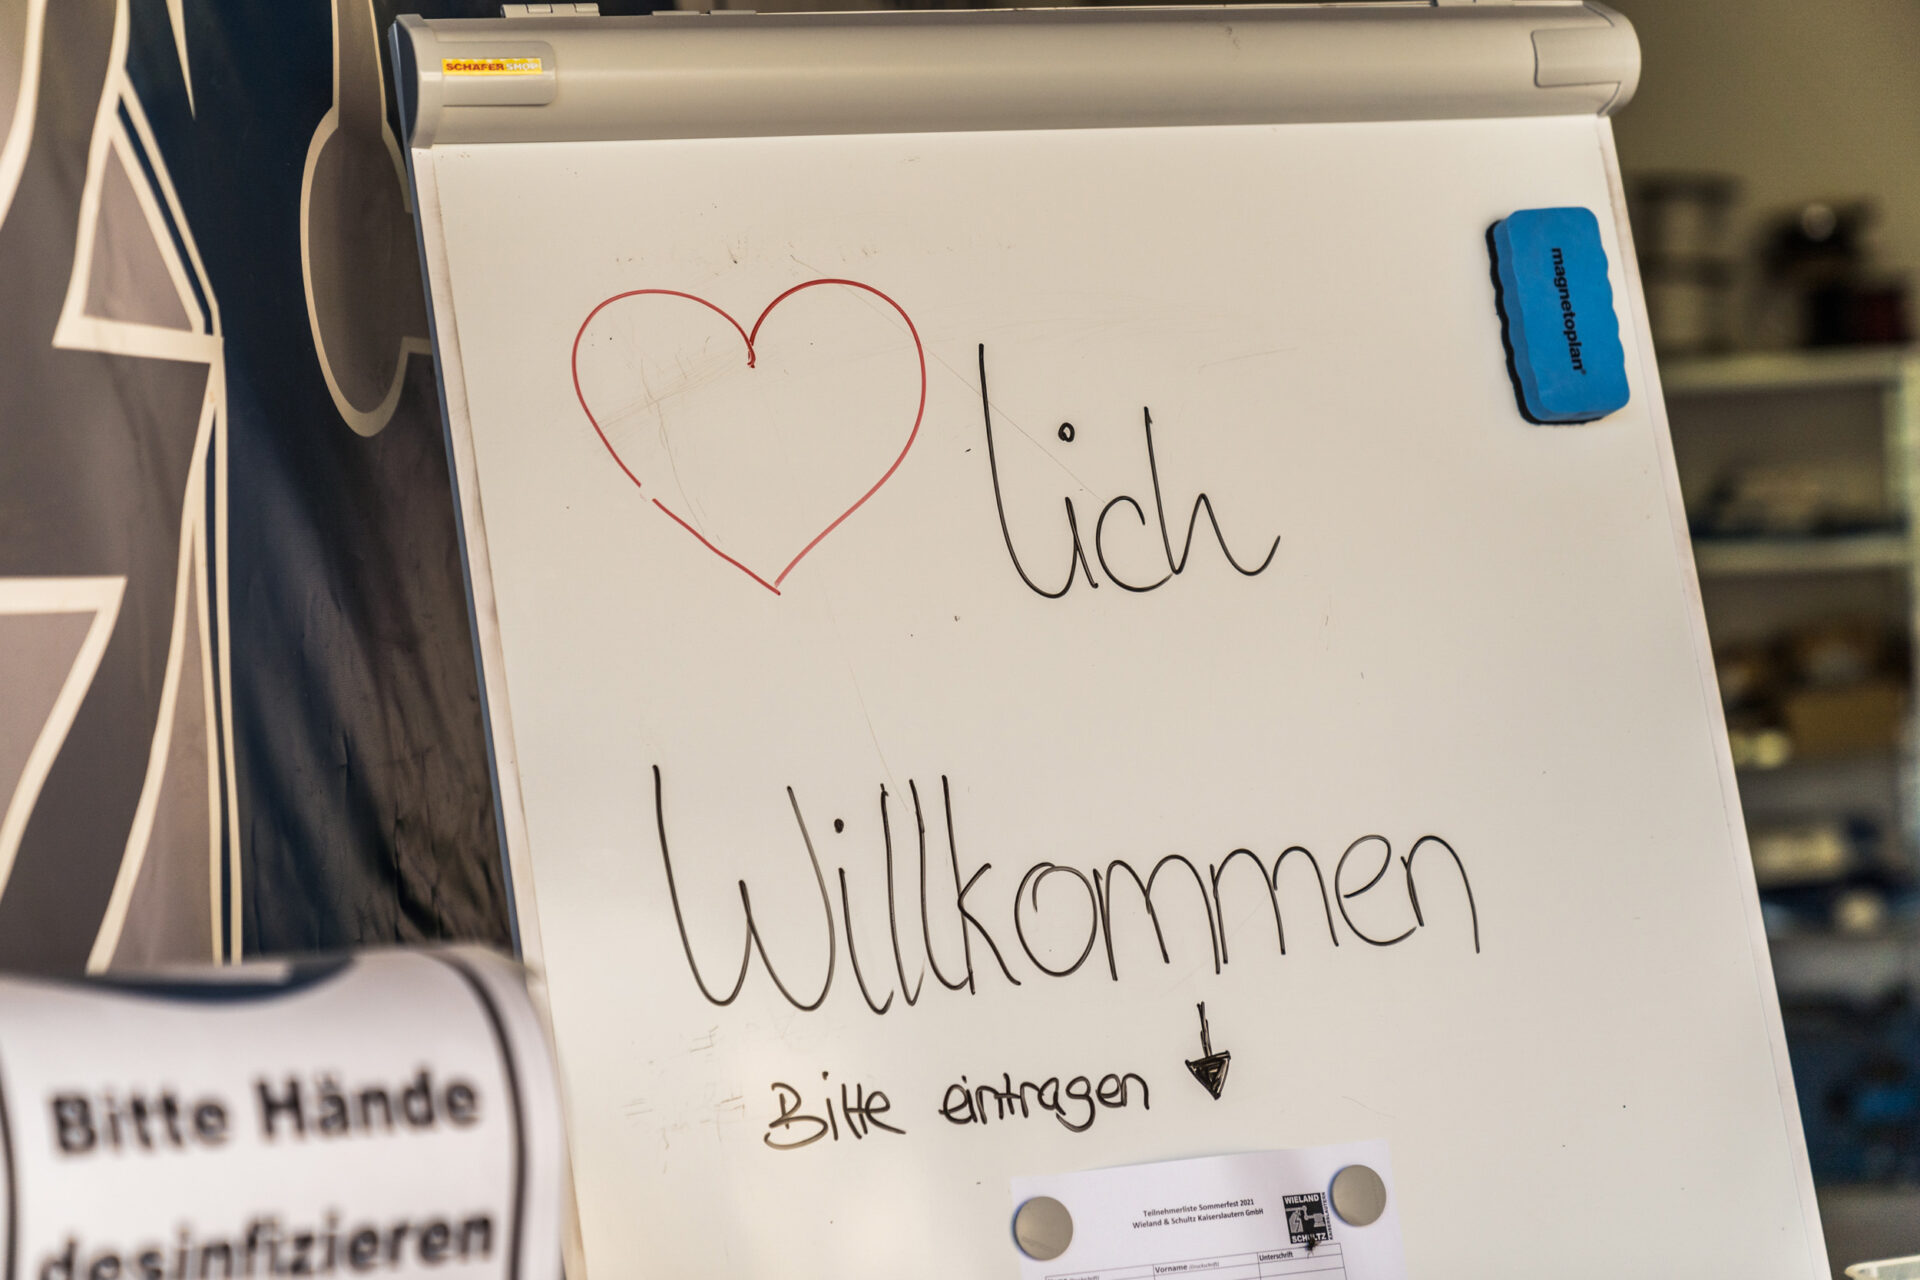 SCHÄFER SHOP
magnetoplan®
lich
Willkommen
Bitte eintragen
Bitte Hände
desinfizieren
Teilnehmerliste Sommerfest 2021
Wieland & Schultz Kaiserslautern GmbH
WIELAND
SCHULTZ
KAISERSLAUTERN
Vorname (Druckschrift)
Unterschrift